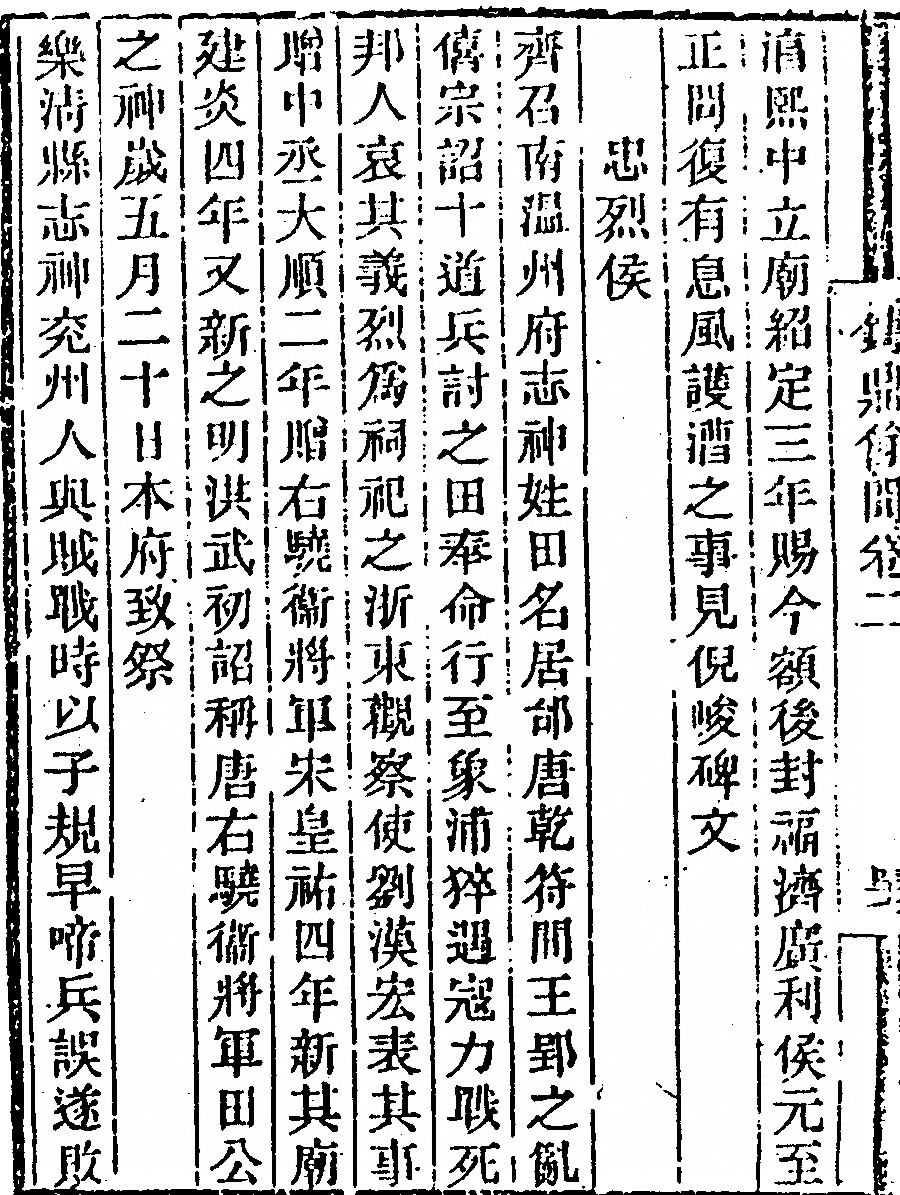 鑄鼎餘聞卷二
淯熙中立廟紹定三年賜今額後封福擠廣利侯元至
正間復有息風護漕之事見倪峻碑文
忠烈侯
齊召南溫州府志神姓田名居邰唐乾符間王郢之亂
僖宗詔十道兵討之田奉命行至象浦猝遇寇力戰死
邦人哀其義烈爲祠祀之浙東觀察使劉漢宏表其事
贈中丞大順二年贈右驍衞將軍宋皇祐四年新其廟
建炎四年又新之明洪武初詔稱唐右驍衞將軍田公
之神歲五月二十日本府致祭
樂淸縣志神兗州人與賊戰時以子規早啼兵誤遂敗